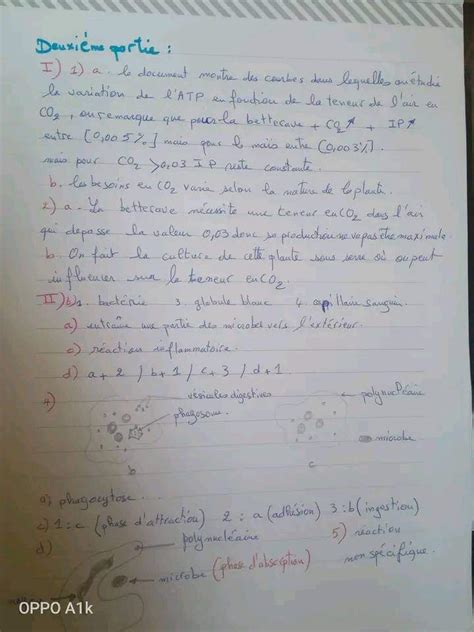 Deuxième partie :
I) 1) a. le document montre des courbes dans lequelles on étudié
la variation de l'ATP en fonction de la teneur de l'air en
CO2, on remarque que pour la betterave + CO2 ↗ + IP ↗
entre [0,005%] mais pour le maïs entre [0,003%].
mais pour CO2 > 0,03 IP reste constante.
b. les besoins en CO2 varie selon la nature de la plante.
2) a - La betterave nécessite une teneur en CO2 dans l'air
qui depasse la valeur 0,03 donc sa production ne va pas être maximale.
b. On fait la culture de cette plante sous serre où on peut
influencer sur la teneur en CO2.
II) 1. bactérie 3. globule blanc 4. capillaire sanguin.
a) entraîne une partie des microbes vers l'extérieur.
c) réaction inflammatoire.
d) a + 2 / b + 1 / c + 3 / d + 1
4)
vesicules digestives
phagosome
polynucléaire
microbe
b
c
a) phagocytose...
c) 1 : c (phase d'attraction) 2 : a (adhésion) 3 : b (ingestion)
d)
polynucléaire
5) réaction
non spécifique.
microbe (phase d'absorption)
OPPO A1k